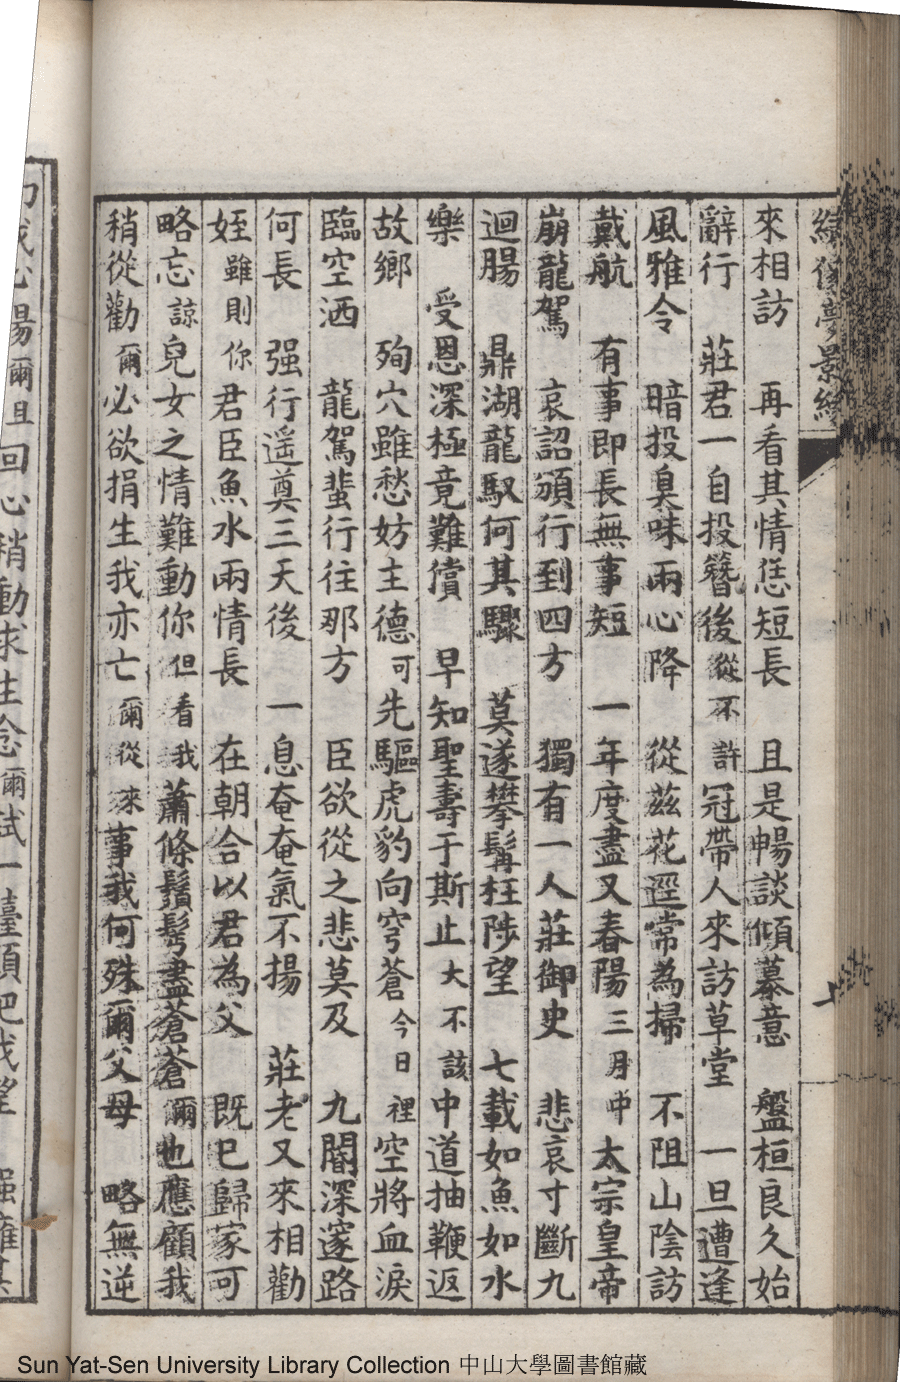 來相訪　再看其情恁短長　且是暢談傾慕意　盤桓良久始
辭行　莊君一自投簪後從不許冠帶人來訪草堂　一旦遭逢
風雅令　暗投臭味兩心降　從茲花逕常為掃　不阻山陰訪
戴航　有事即長無事短　一年度盡又春陽三月中太宗皇帝
崩龍駕　哀詔頒行到四方　獨有一人莊御史　悲哀寸斷九
迴腸　鼎湖龍馭何其驟　莫遂攀髯枉陟望　七載如魚如水
樂　受恩深極竟難償　早知聖壽于斯止大不該中道抽鞭返
故鄉　殉穴雖愁妨主德可先驅虎豹向穹蒼今日裡空將血淚
臨空洒　龍駕蜚行往那方　臣欲從之悲莫及　九閽深邃路
何長　强行遥奠三天後　一息奄奄氣不揚　莊老又來相勸
姪雖則你君臣魚水兩情長　在朝合以君為父　既已歸家可
略忘諒兒女之情難動你但看我蕭條鬚髩盡蒼蒼爾也應顧我
稍從勸爾必欲捐生我亦亡爾從來事我何殊爾父母　略無逆
爾且回心稍動求生念爾試一
Sun Yat-Sen University Library Collection 中山大學圖書館藏